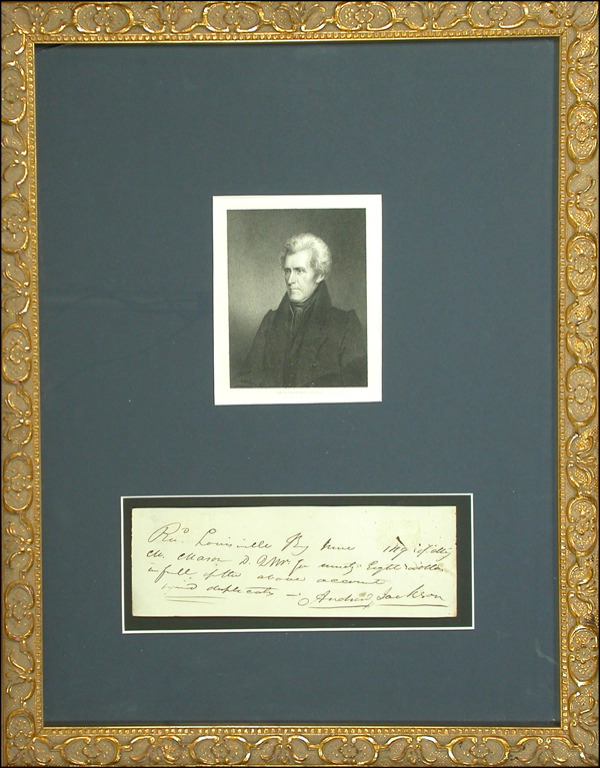 Rec'd Louisville Ky June 1819 of
M. Mason D. Q Mr for ninety Eight dollars
in full of the above account
duplicates — Andrew Jackson